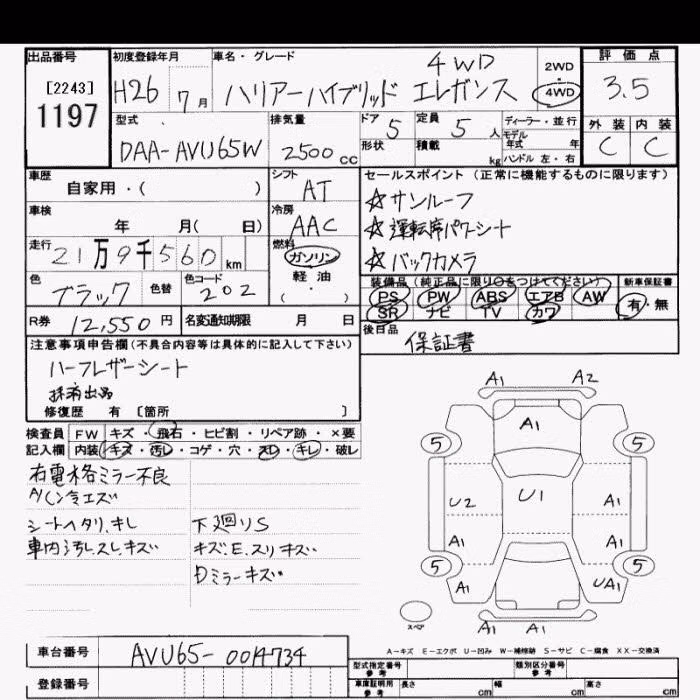 出品番号
[2243]
1197
初度登録年月
H26 7月
車名・グレード
4WD
ハリアーハイブリッド エレガンス
2WD
・
4WD
評価点
3.5
外装 内装
C C
型式
DAA-AVU65W
排気量
2500cc
ドア 5
定員 5人
形状
積載 kg
ディーラー・並行
モデル
年式 年
ハンドル 左・右
車歴
自家用・( )
シフト
AT
車検
年 月( 日)
冷房
AAC
走行
21万9千560km
燃料
ガソリン
軽・油
・( )
色
ブラック
色替
色コード
202
R券 12,550円
名変通知期限 月 日
セールスポイント(正常に機能するものに限ります)
☆サンルーフ
☆運転席パワーシート
☆バックカメラ
装備品(純正品に限り○をつけてください)
PS PW ABS エアB AW
SR ナビ TV カワ
新車保証書
有・無
後日品
保証書
注意事項申告欄(不具合内容等は具体的に記入して下さい)
ハーフレザーシート
抹消出品
修復歴 有 [箇所 ]
検査員 FW キズ・飛石・ヒビ割・リペア跡・×要
記入欄 内装 キズ・汚レ・コゲ・穴・スレ・キレ・破レ
右電格ミラー不良
A/Cシ冷エズ
シートヘタリ、キレ
車内汚レスレキズ
下廻リS
キズ、E、スリキズ
Dミラーキズ
A1 A2
A1
5 5
U2 U1 A1
A1 A1
5 5
A1 UA1
A1 A1
スペア
A-キズ E-エクボ U-凹み W-補修跡 S-サビ C-腐食 XX-交換済
車台番号
AVU65-0014734
登録番号
型式指定番号
参考
類別区分番号
参考
車庫証明用
参考
長さ cm 幅 cm 高さ cm